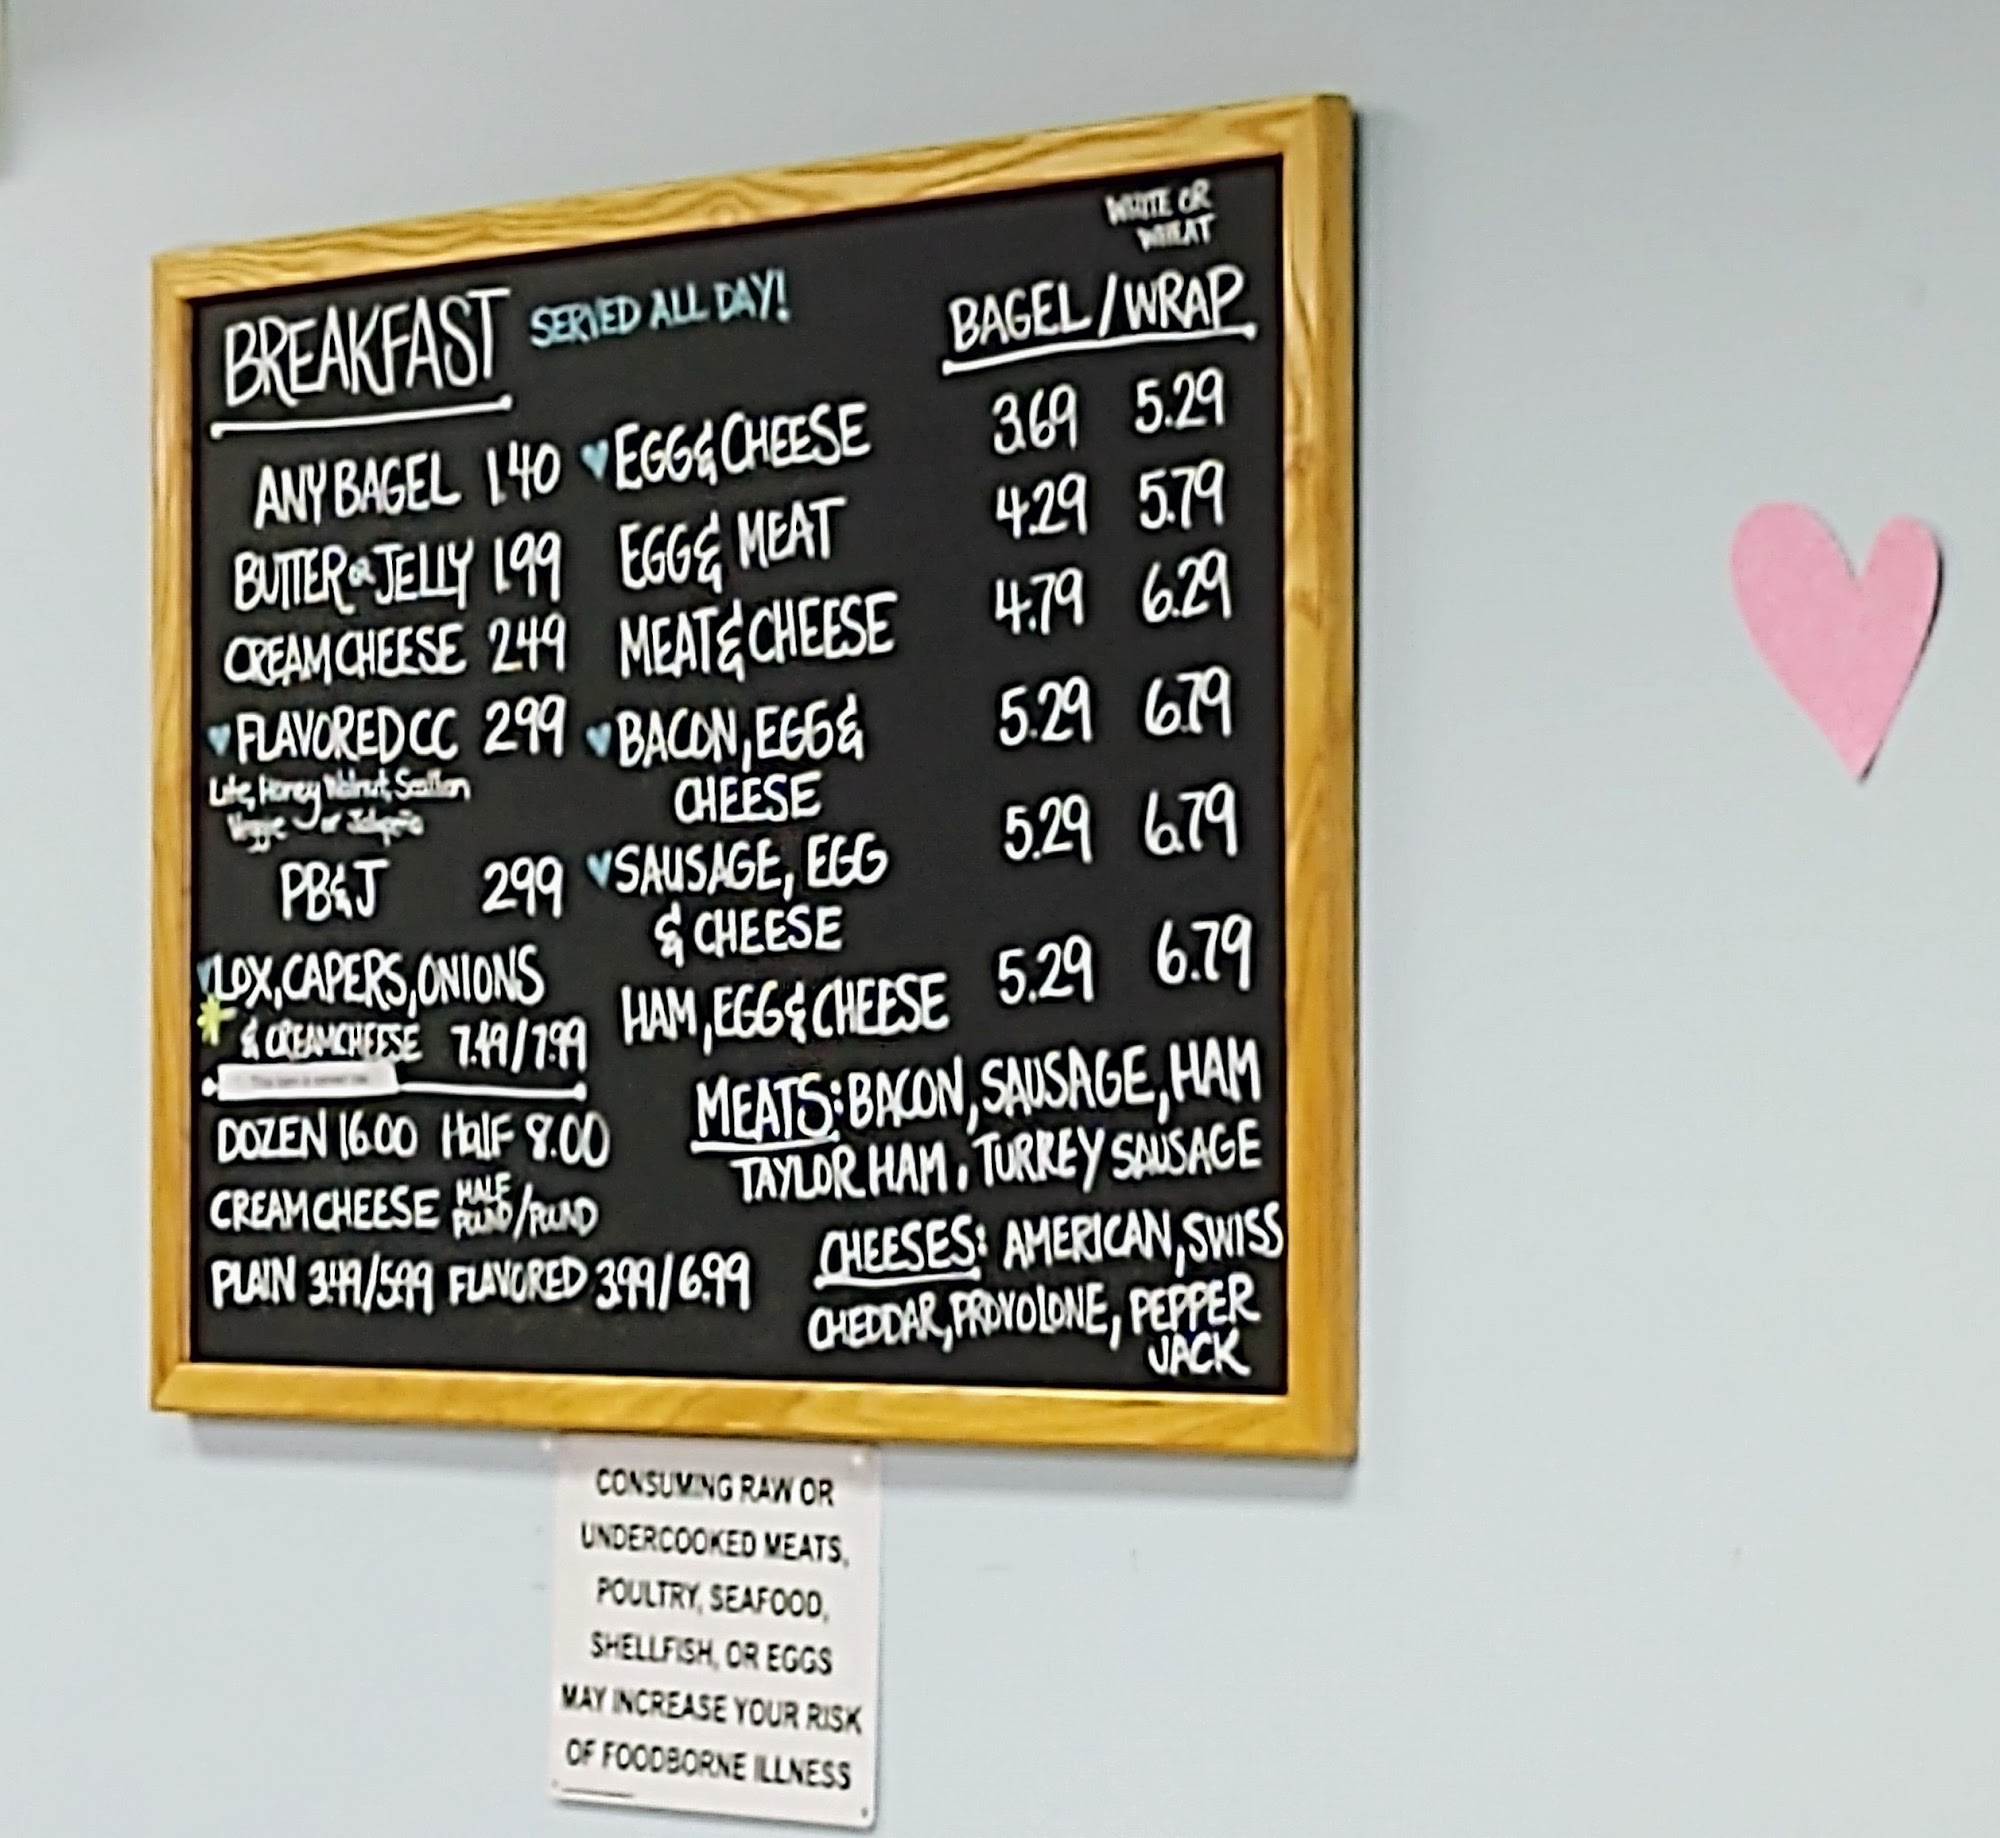 WHITE OR
WHEAT
BREAKFAST SERVED ALL DAY!
BAGEL/WRAP
ANY BAGEL 1.40
BUTTER OR JELLY 1.99
CREAM CHEESE 2.49
FLAVORED CC 2.99
Lite, Honey Walnut, Scallion
Veggie or Jalapeño
PB&J 2.99
LOX, CAPERS, ONIONS
& CREAMCHEESE 7.49/7.99
DOZEN 16.00 HALF 8.00
CREAM CHEESE HALF POUND/POUND
PLAIN 3.49/5.99 FLAVORED 3.99/6.99
EGG & CHEESE 3.69 5.29
EGG & MEAT 4.29 5.79
MEAT & CHEESE 4.79 6.29
BACON, EGG & 5.29 6.79
CHEESE
SAUSAGE, EGG 5.29 6.79
& CHEESE
HAM, EGG & CHEESE 5.29 6.79
MEATS: BACON, SAUSAGE, HAM
TAYLOR HAM, TURKEY SAUSAGE
CHEESES: AMERICAN, SWISS
CHEDDAR, PROVOLONE, PEPPER
JACK
CONSUMING RAW OR
UNDERCOOKED MEATS,
POULTRY, SEAFOOD,
SHELLFISH, OR EGGS
MAY INCREASE YOUR RISK
OF FOODBORNE ILLNESS